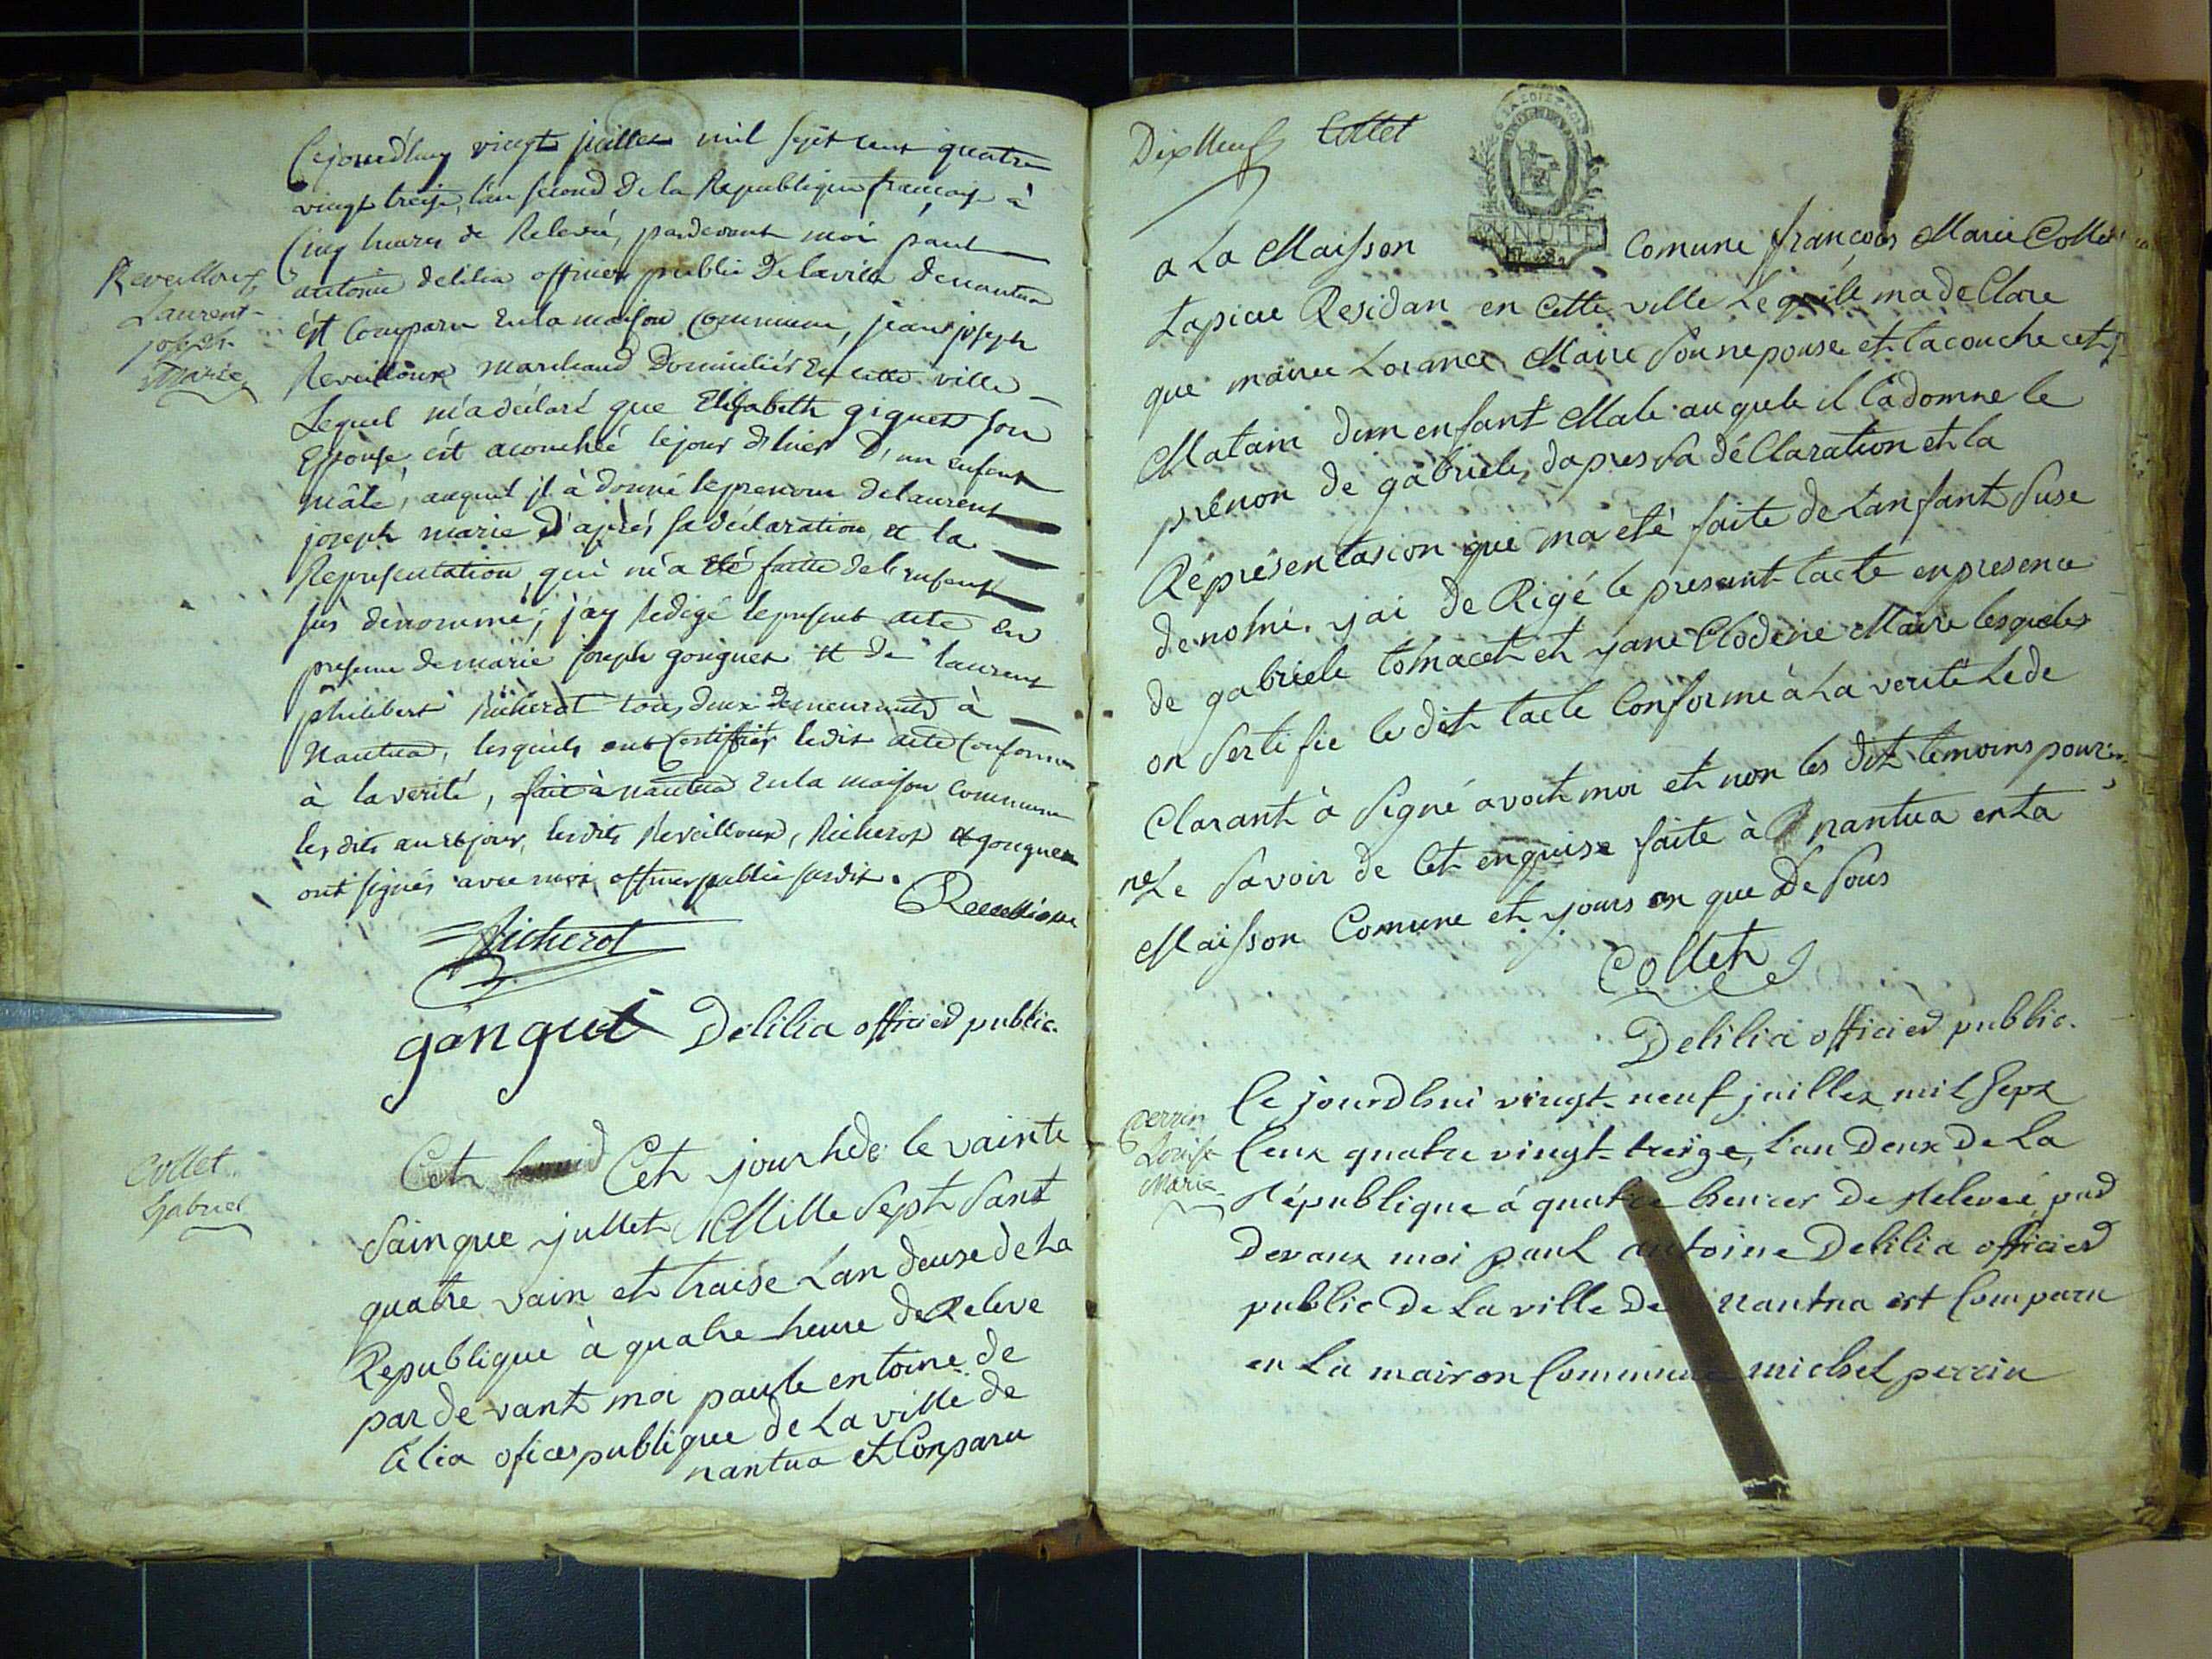 Cejourd'huy vingt juillet mil sept cent quatre
vingt treise, l'an second de la Republique française à
Cinq heures de Relevée, pardevant moi paul
antoine delilia officier public de la ville de nantua
est Comparu en la maison commune, jean joseph
Reveilloux marchand Domicilié En cette ville
Lequel m'a déclaré que Elisabeth giguet son
Epouse, est acouchée le jour d'hier D'un enfant
mâle, auquel il à donné le prenom de laurent
joseph marie d'après sa déclaration et la
Representation qui m'a été faitte de l'enfant
sus denommé, j'ay Redigé le present acte en
presence de marie joseph gonguet et de laurent
philibert Richerot tous deux demeurants à
Nantua, lesquels ont Certiffiés ledit acte Conforme
à la verité, fait à nantua en la maison commune
les dits an et jour, lesdits Reveilloux, Richerot et gonguet
ont signés avec moi officier public susdit.
Reveilloux
Richerot
gongué Delilia officier public.
Reveilloux
Laurent-
joseph-
Marie
Collet
Gabriel
Cet Cet jourhde le vainte
Sainque jullet Mille Sept Sant
quatre vain et traise Lan deuse de La
Republique à quatre heure de Releve
par de vant moi paule entoine de
lilia ofices publique de La ville de
nantua et Conparu
DixNeuf Collet
MINUTE
a La Maisson Comune françois Marie Collet
Lapicie Residan en Cette ville Le quile ma de Clare
que mairie Lorance Maire Sounepouse et tacouche cet
Matain dunn enfant Male auquele il ladonne le
prénon de gabriele, dapres sa déClaration et la
Réprésentasion que ma eté faite de Lanfant Suse
denomé. jai de Rigé le present tacte en presence
de gabriele tonacet et jane Clodine Maire lesqueles
on Sertifie le dit tacte Conforme à La verite Le de
Clarant à Signé avect moi et non les dit temoins pour
ne Le Savoir de Cet enquise faite à nantua en La
Maisson Comune et jours an que De Sous
Collet
Delilia officier public.
perrin
Louise
Marie
Ce jourd'hui vingt-neuf juillet mil Sept
Cent quatre vingt-treize, l'an Deux De La
République á quatre heures De Relevée, par
Devant moi paul antoine Delilia officier
public De La ville De Nantua est Comparu
en La maison Commune michel perrin